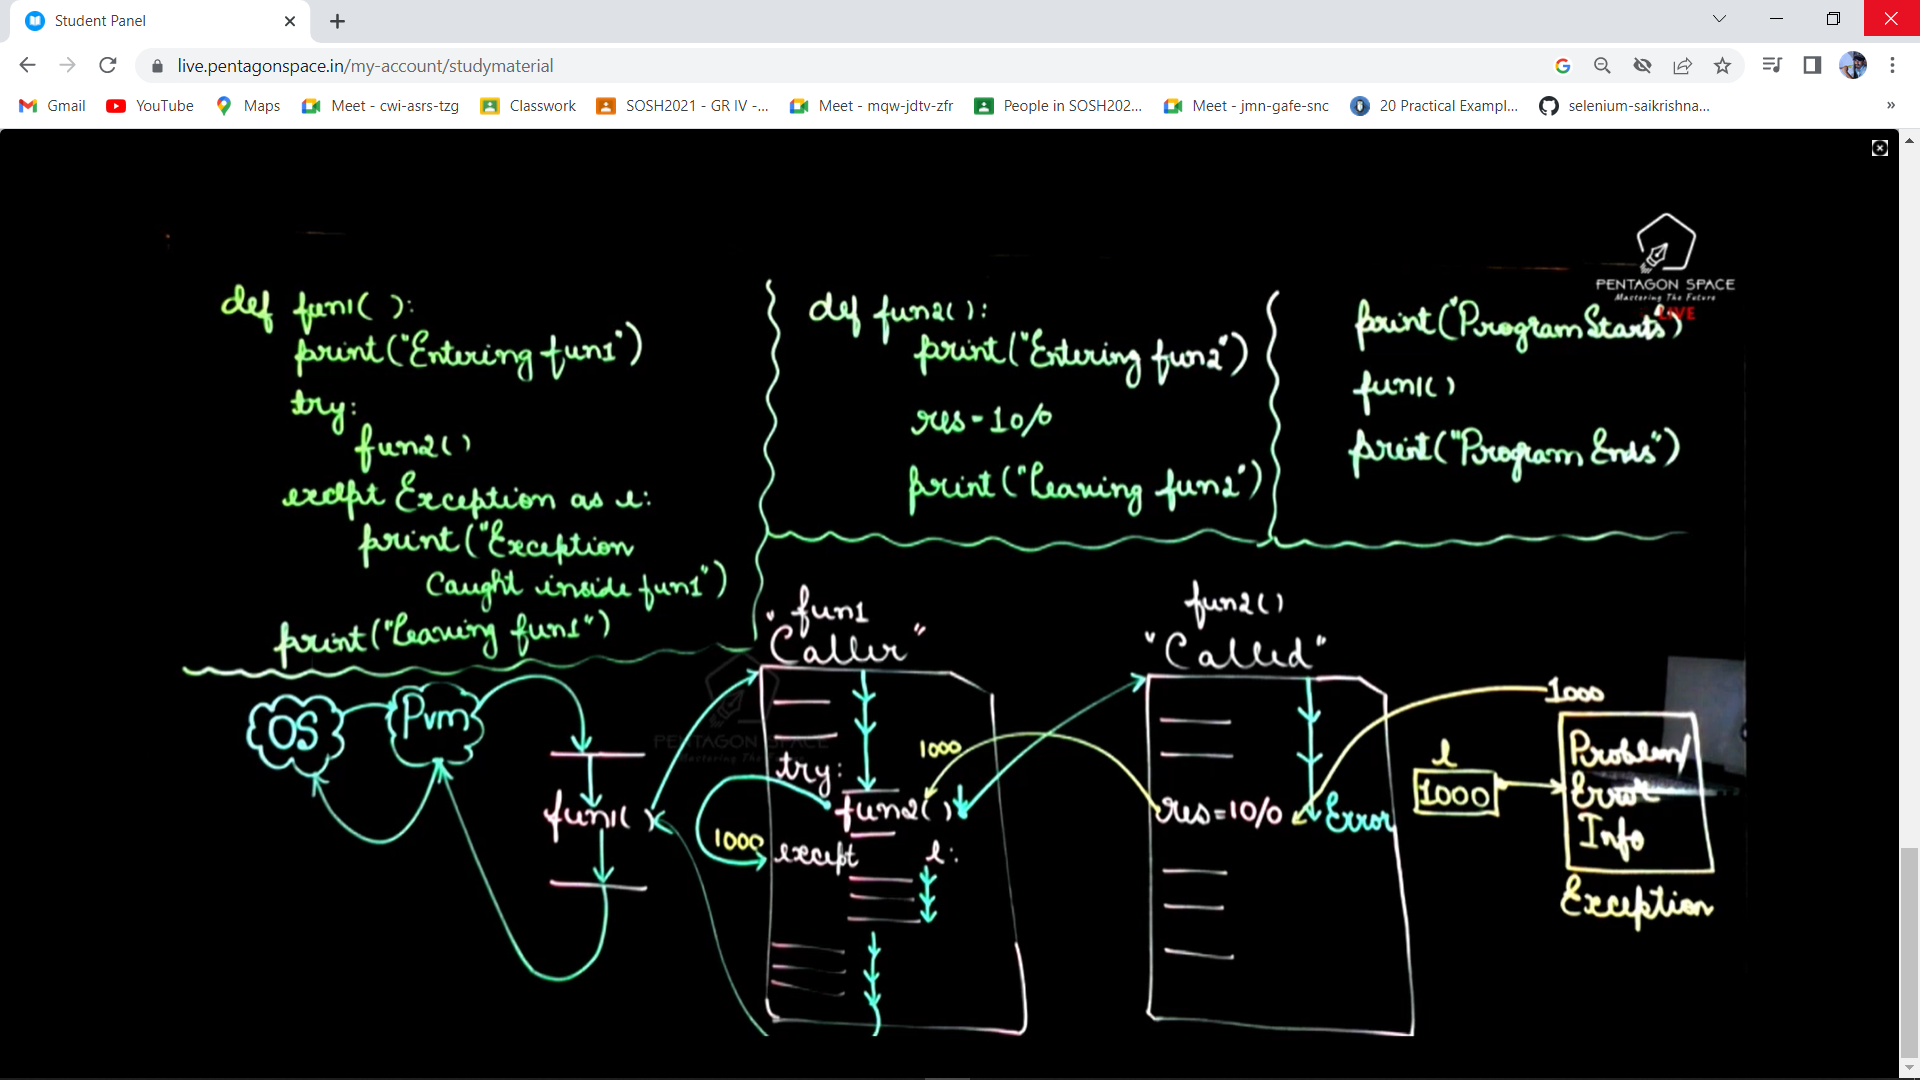 Student Panel
live.pentagonspace.in/my-account/studymaterial
Gmail
YouTube
Maps
Meet - cwi-asrs-tzg
Classwork
SOSH2021 - GR IV -...
Meet - mqw-jdtv-zfr
People in SOSH202...
Meet - jmn-gafe-snc
20 Practical Exampl...
selenium-saikrishna...
»
PENTAGON SPACE
Mastering The Future
LIVE
def fun1( ):
print("Entering fun1")
try:
fun2()
except Exception as e:
print("Exception
Caught inside fun1")
print("Leaving fun1")
def fun2():
print("Entering fun2")
res = 10/0
print("Leaving fun2")
print("Program Starts")
fun1()
print("Program Ends")
OS
Pvm
fun1( )
fun1
"Caller"
try:
fun2( )
1000
1000
except e:
PENTAGON SPACE
Mastering The Future
fun2()
"Called"
res=10/0
Error
1000
e
1000
Problem/
Error
Info
Exception